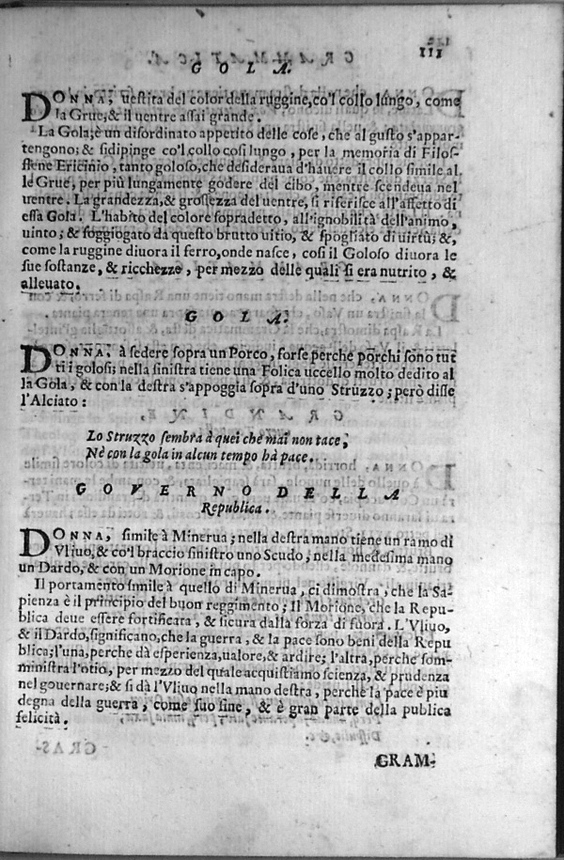 111
G O L A.
DONNA, uestita del color della ruggine, co'l collo lungo, come
la Grue, & il uentre assai grande.
La Gola, è un disordinato appetito delle cose, che al gusto s'appar-
tengono; & si dipinge co'l collo così lungo, per la memoria di Filos-
sene Ericinio, tanto goloso, che desideraua d'hauere il collo simile al
le Grue, per più lungamente godere del cibo, mentre scendeua nel
uentre. La grandezza, & grossezza del uentre, si riferisce all'effetto di
essa Gola. L'habito del colore sopradetto, all'ignobilità dell'animo,
uinto, & soggiogato da questo brutto uitio, & spogliato di uirtù; &,
come la ruggine diuora il ferro, onde nasce, così il Goloso diuora le
sue sostanze, & ricchezze, per mezzo delle quali si era nutrito, &
alleuato.
G O L A.
DONNA, à sedere sopra un Porco, forse perche porchi sono tut
ti i golosi; nella sinistra tiene una Folica uccello molto dedito al
la Gola, & con la destra s'appoggia sopra d'uno Struzzo; però disse
l'Alciato:
Lo Struzzo sembra à quei che mai non tace,
Nè con la gola in alcun tempo hà pace.
G O V E R N O D E L L A
Republica.
DONNA, simile à Minerua; nella destra mano tiene un ramo di
Vliuo, & co'l braccio sinistro uno Scudo; nella medesima mano
un Dardo, & con un Morione in capo.
Il portamento simile à quello di Minerua, ci dimostra, che la Sa-
pienza è il principio del buon reggimento; Il Morione, che la Repu-
blica deue essere fortificata, & sicura dalla forza di fuora. L'Vliuo,
& il Dardo, significano, che la guerra, & la pace sono beni della Repu
blica; l'una, perche dà esperienza, ualore, & ardire; l'altra, perche som-
ministra l'otio, per mezzo del quale acquistiamo scienza, & prudenza
nel gouernare; & si dà l'Vliuo nella mano destra, perche la pace è più
degna della guerra, come suo fine, & è gran parte della publica
felicità.
GRAM-